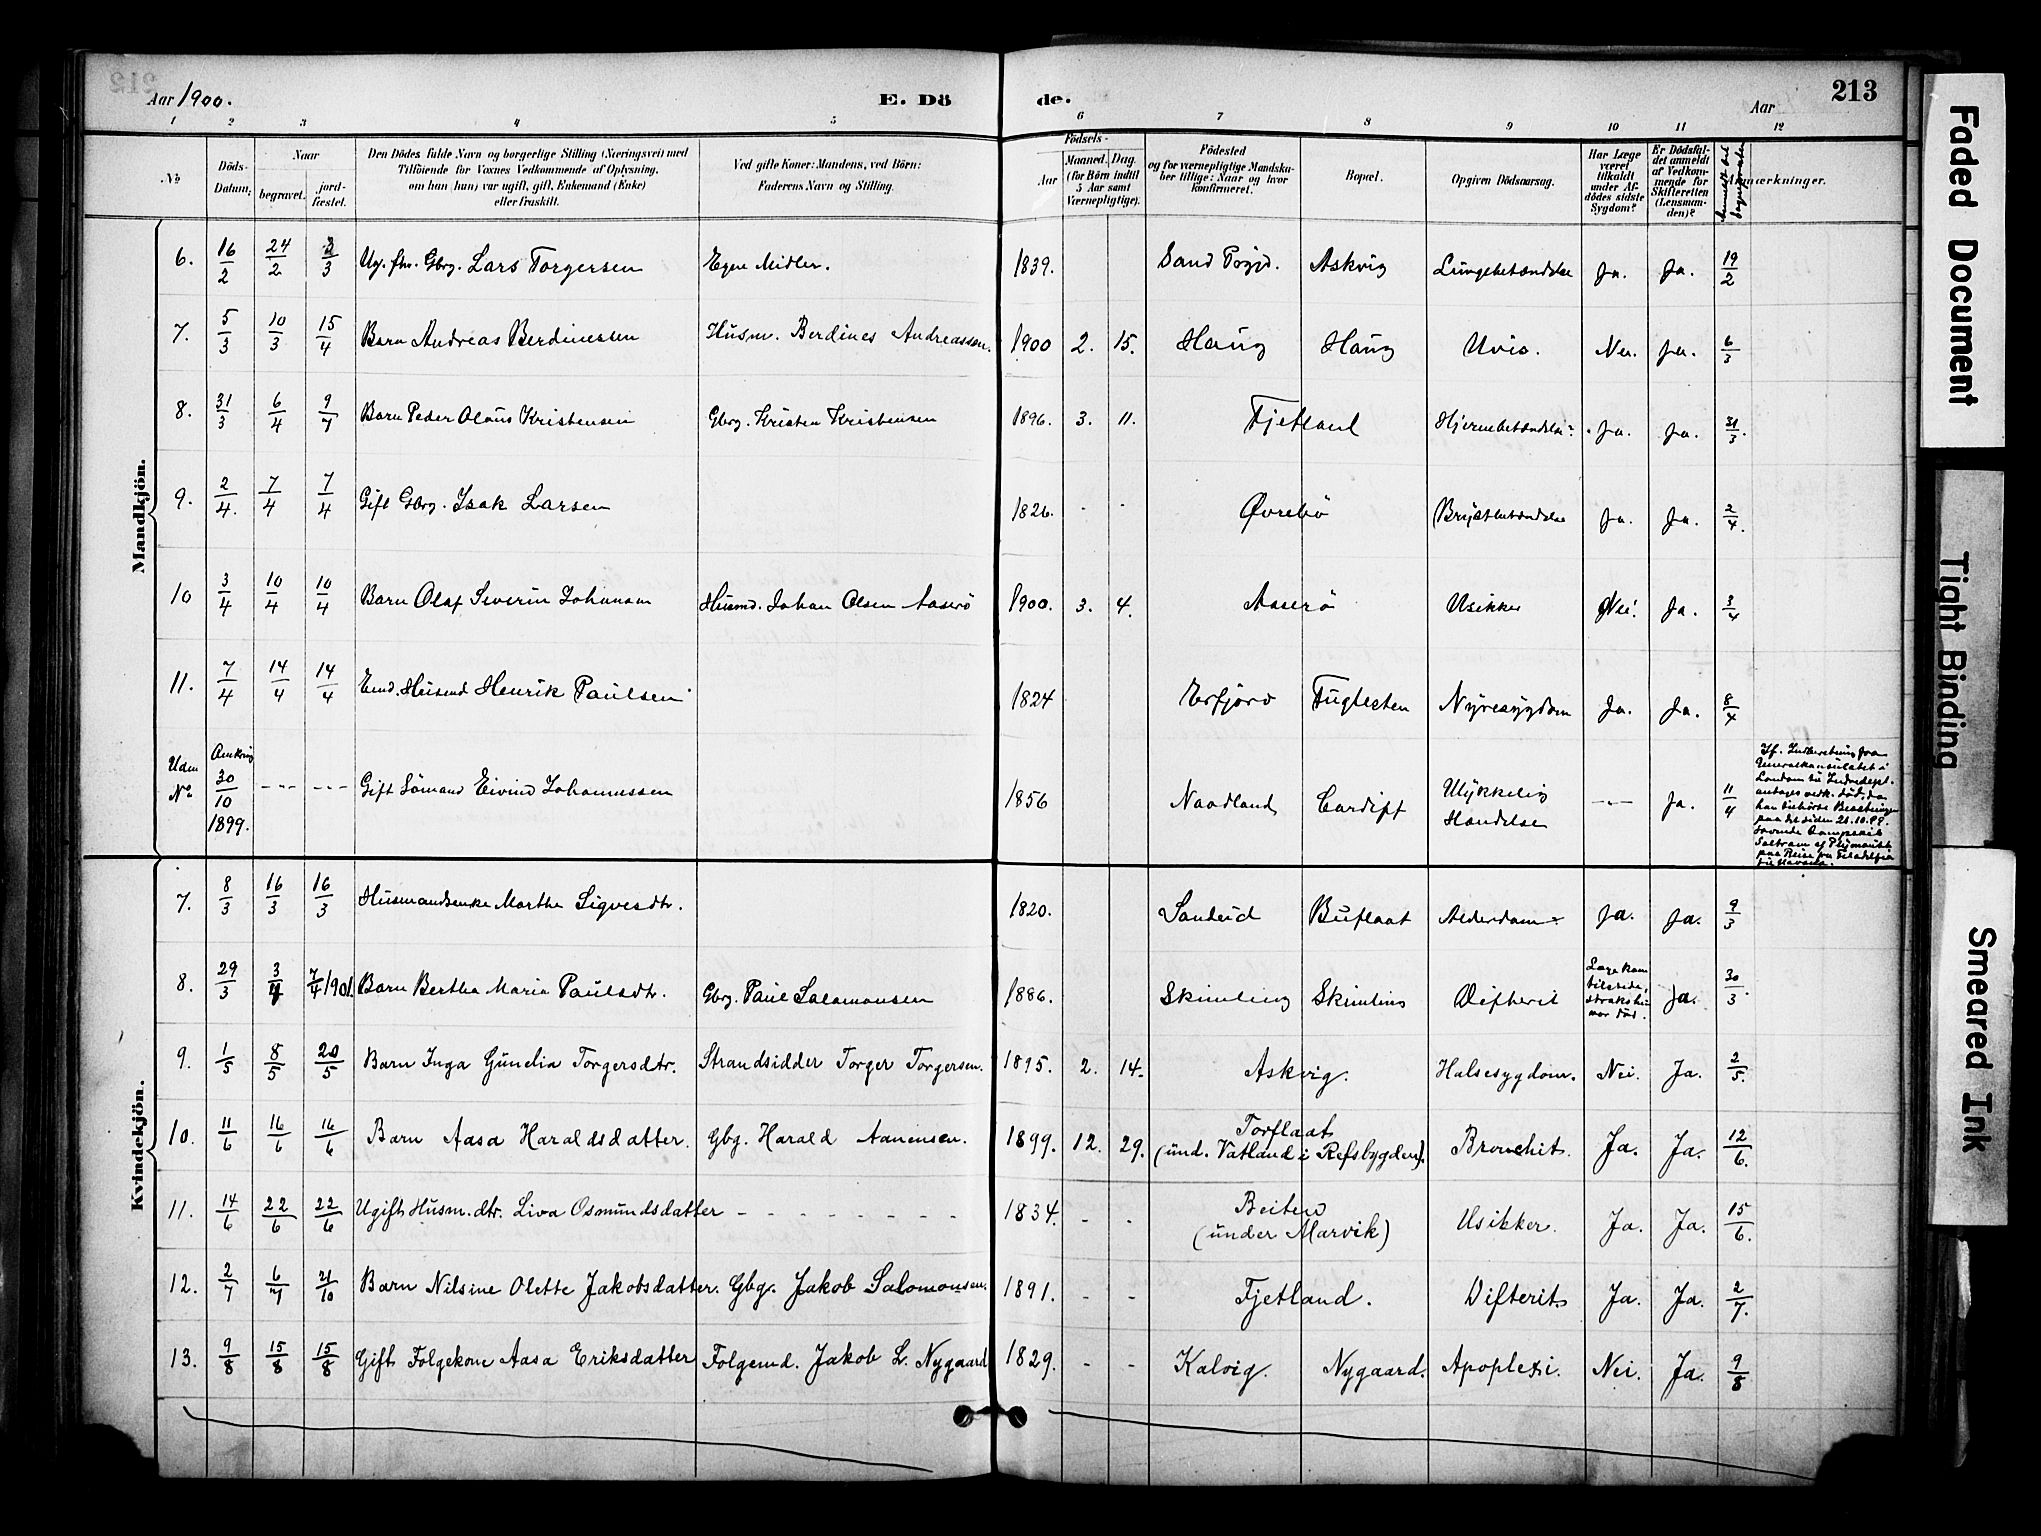 Aar 1900. E. Dö de. Aar 213
1 2 3 4 5 6 7 8 9 10 11 12
No. Döds-Datum. Naar begravet. jordfæstet. Den Dödes fulde Navn og borgerlige Stilling (Næringsvei) med Tilföiende for Voxnes Vedkommende af Oplysning, om han (hun) var ugift, gift, Enkemand (Enke) eller fraskilt. Ved gifte Koner: Mandens, ved Börn: Faderens Navn og Stilling. Födsels- Aar Maaned. Dag. (for Börn indtil 5 Aar samt Værnepligtige). Födested og for værnepligtige Mandskaber tillige: Naar og hvor konfirmeret. Bopæl. Opgiven Dödsaarsag. Har Læge været tilkaldt under Afdödes sidste Sygdom? Er Dödsfaldet anmeldt af Vedkommende for Skifteretten (Lensmanden)? Anmærkninger.
Mandkjön.
6. 16/2 24/2 3/3 Ug. fhv. Gbrg. Lars Torgersen Egne Midler. 1839. Sand Prgjd. Askvig Lungebetændelse Ja. Ja. 19/2
7. 5/3 10/3 15/4 Barn Andreas Berdinessen Husm. Berdines Andreassen. 1900 2. 15. Haug Haug Uvis. Nei. Ja. 6/3
8. 31/3 6/4 9/7 Barn Peder Olaus Kristensen Gbrg. Kristen Kristensen 1896. 3. 11. Fjetland Hjernebetændelse Ja. Ja. 31/3.
9. 2/4. 7/4 7/4 Gift Gbrg. Isak Larsen 1826. - - Øvrebö Brystbetændelse Ja. Ja. 2/4.
10 3/4 10/4 10/4 Barn Olaf Severin Johansen Husmd. Johan Olsen Aaserö 1900. 3. 4. Aaserö Usikker Nei. Ja. 3/4
11. 7/4 14/4 14/4 Emd. Husmd Henrik Paulsen 1824 Erfjord Fuglesten Nyresygdom Ja. Ja. 8/4
Uden No. Omkring 30/10 1899. --- --- Gift Sömand Eivind Johannessen 1856 Naadland Cardiff Ulykkelig Hændelse --- Ja. 11/4 If. Indberetning fra Generalkonsulatet i London til Indredept. antages vedk. död, da han tilhörte Besætningen paa det siden 21.10.99. savnede Dampskib Saltram af Plymouth paa Reise fra Filadelfia til Havana.
Kvindekjön.
7. 8/3 16/3 16/3 Husmandsenke Marthe Sigvesdtr. 1820. Sandeid Buflaat Alderdom Ja. Ja. 9/3
8. 29/3 3/4 7/4 1901. Barn Bertha Maria Paulsdtr. Gbrg. Paul Salamonsen 1886. Skimling Skimling Difterit Læge kom tilstede, straks hun var död. Ja. 30/3.
9. 1/5 8/5 20/5 Barn Inga Gunelia Torgersdtr. Strandsidder Torger Torgersen. 1895. 2. 14. Askvig. Halsesygdom. Nei. Ja. 2/5.
10. 11/6 16/6 16/6 Barn Aasa Haraldsdatter. Gbg. Harald Aanensen. 1899. 12. 29. Torflaat (und. Vatland i Refsbygden). Bronchit. Ja. Ja. 12/6.
11. 14/6 22/6 22/6 Ugift Husm.dtr. Liva Osmundsdatter - - - - - - - - 1834. - - Beiten (under Marvik) Usikker. Ja. Ja. 15/6.
12. 2/7 6/7 21/10 Barn Nilsine Olette Jakobsdatter. Gbg. Jakob Salomonsen. 1891. - - Fjetland. Difterit. Ja. Ja. 2/7.
13. 9/8 15/8 15/8 Gift Folgekone Aasa Eriksdatter Folgemd. Jakob L. Nygaard 1829. - - Kalvig. Nygaard. Apoplexi. Nei. Ja. 9/8
Faded Document
Tight Binding
Smeared Ink